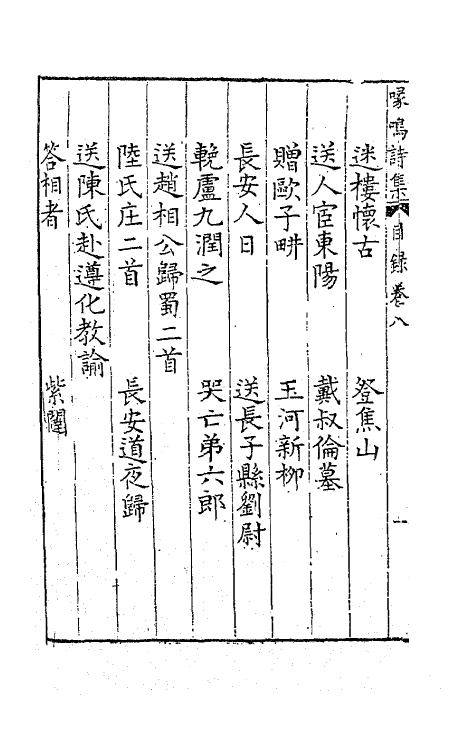 喙鳴詩集 目錄卷八 一
迷樓懷古 登焦山
送人宦東陽 戴叔倫墓
贈歐子畊 玉河新柳
長安人日 送長子縣劉尉
輓盧九潤之 哭亡弟六郎
送趙相公歸蜀二首
陸氏庄二首 長安道夜歸
送陳氏赴遵化教諭
答相者 紫閣